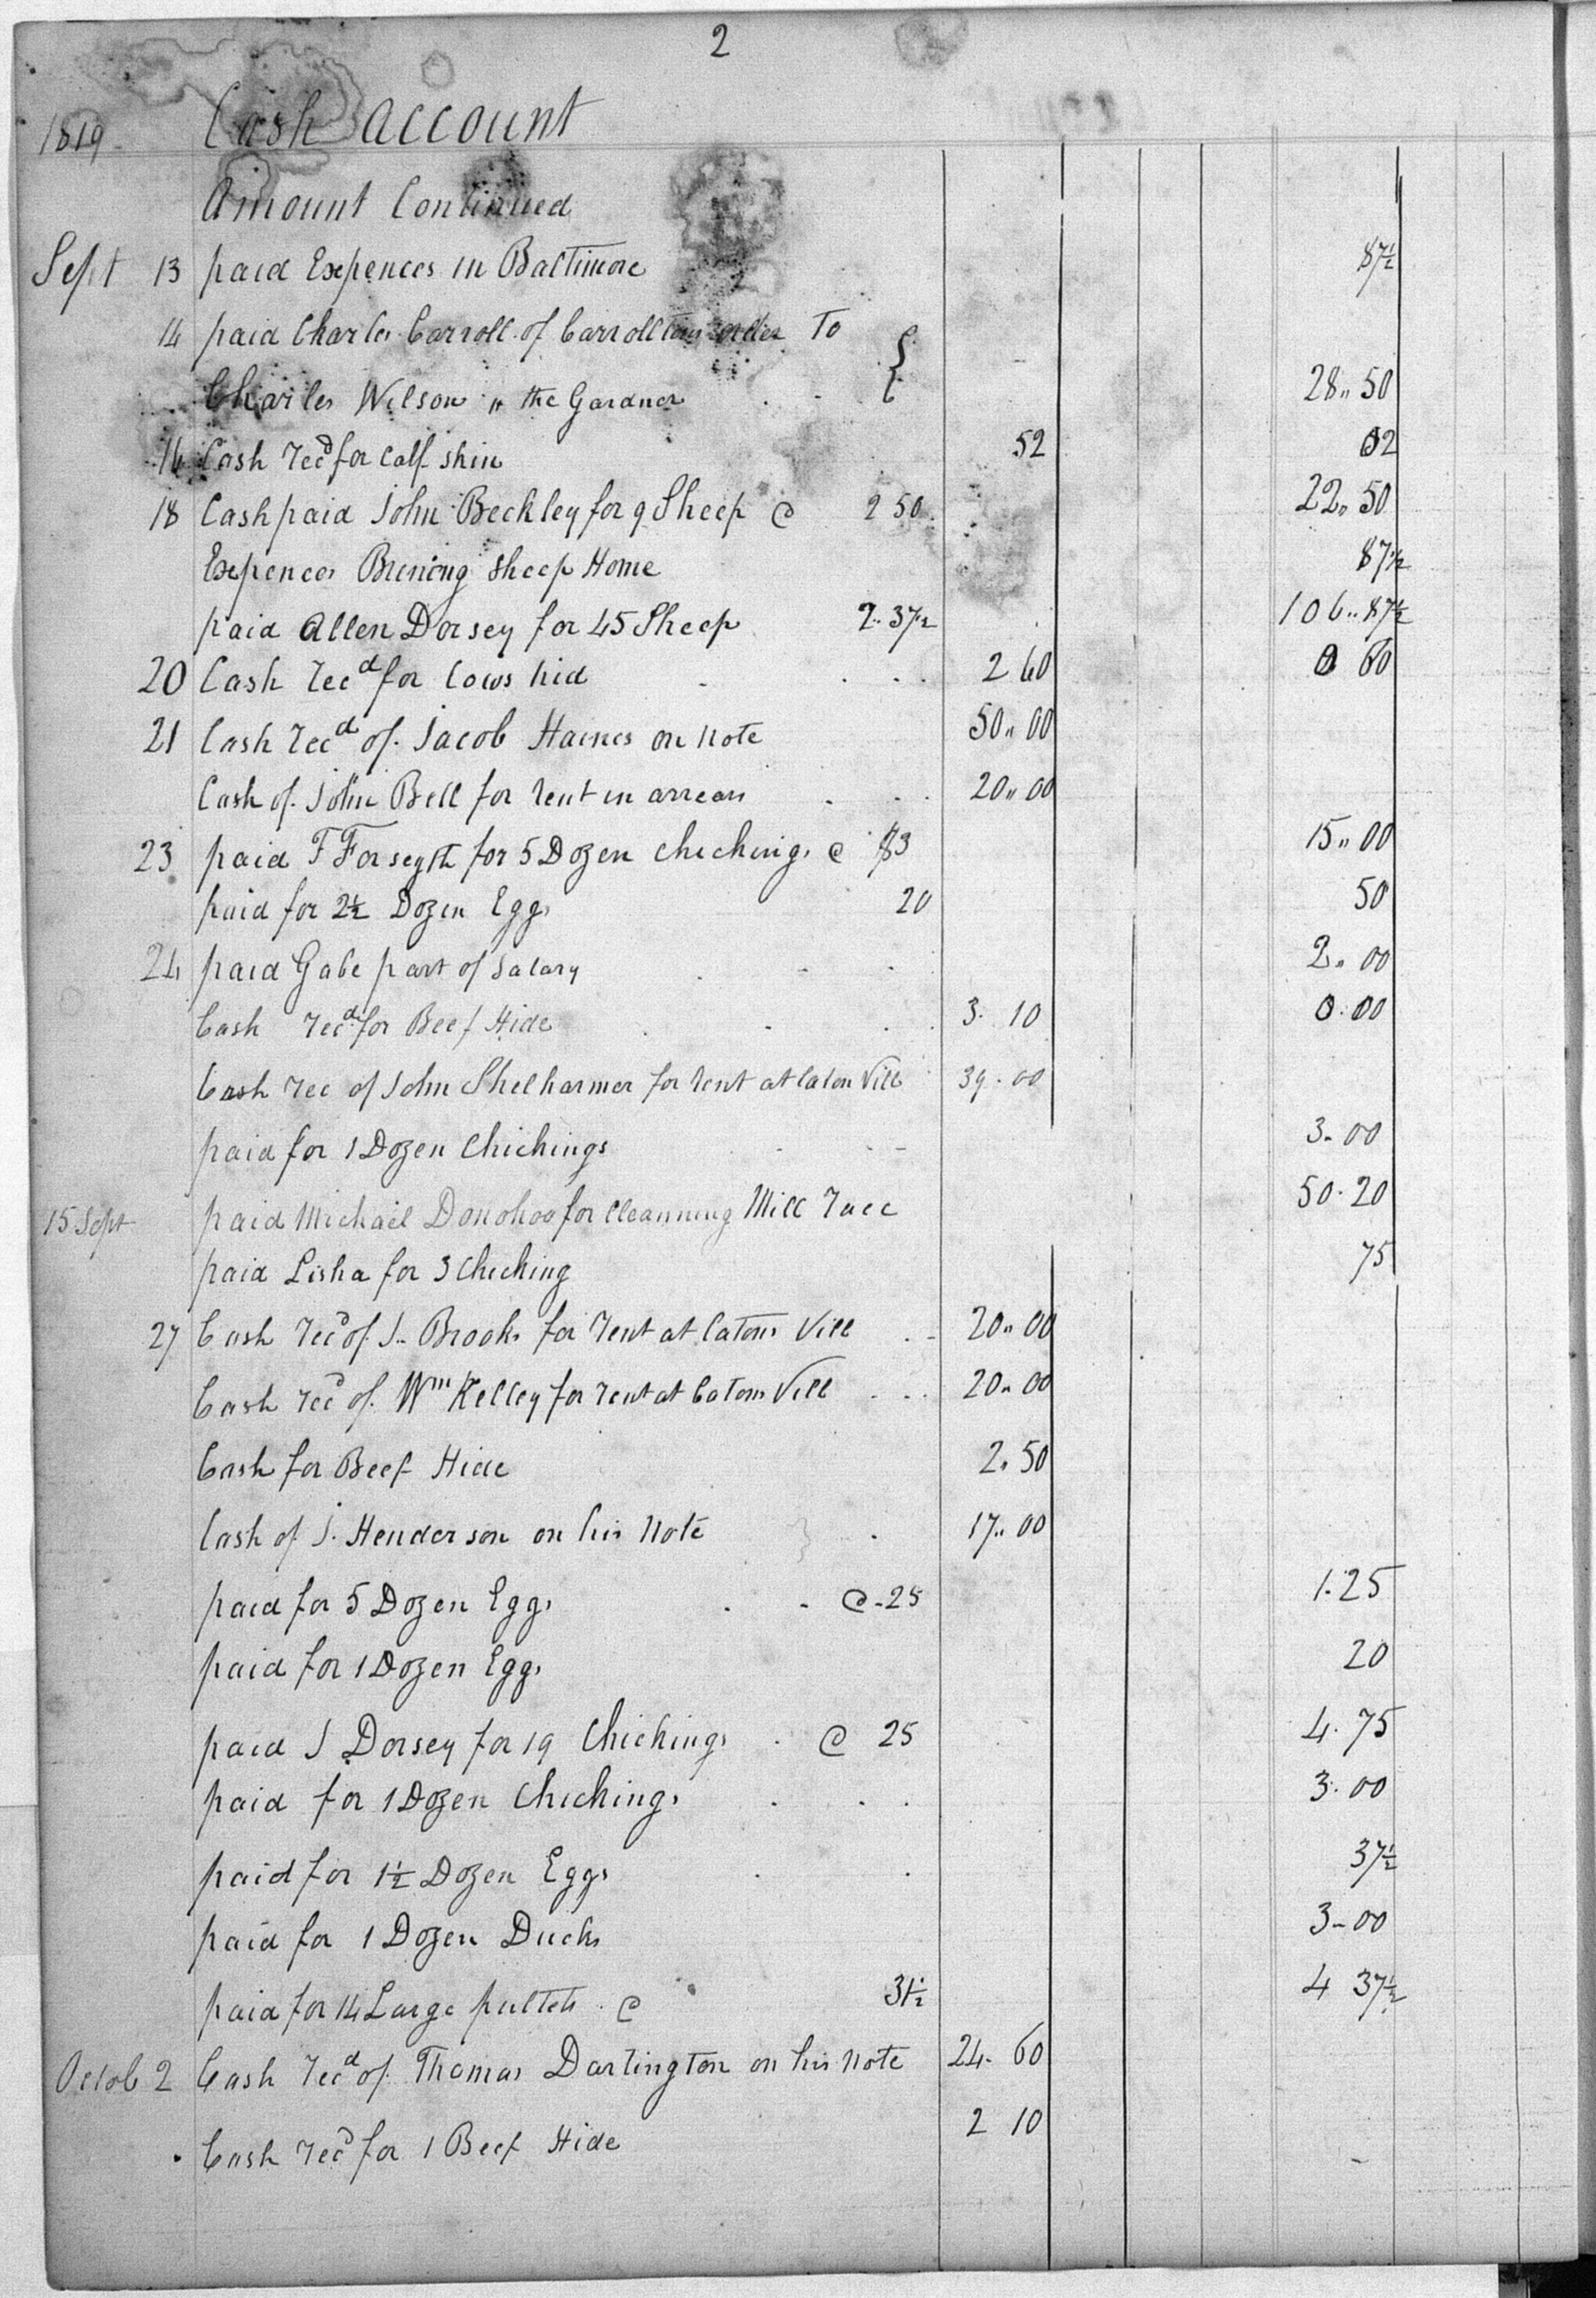 2
1819 Cash account
Amount Continued
Sept 13 paid Expences in Baltimore 87½
14 paid Charles Carroll of Carrollton order To
Charles Wilson " the Gardner 28„50
16 Cash Recd for Calf skin 52 02
18 Cash paid John Beckley for 9 Sheep @ 2 50 22„50
Expences Brining Sheep Home 87½
paid Allen Dorsey for 45 Sheep 2„37½ 106„87½
20 Cash Recd for Cows hid 2 60 0 60
21 Cash Recd of Jacob Haines on Note 50„00
Cash of John Bell for Rent in arrears 20„00
23 paid F Forseyth for 5 Dozen Chickings @ $3 15„00
paid for 2½ Dozen Eggs 20 50
24 paid Gabe part of Salary 2„00
Cash Recd for Beef Hide 3. 10 0.00
Cash Rec of John Shelharmer for Rent at Caton Vill 39.00
paid for 1 Dozen Chickings 3-00
15 Sept paid Michael Donohoo for Cleanning Mill Race 50.20
paid Lisha for 3 Chicking 75
27 Cash Recd of J. Brooks for Rent at Catons Vill 20„00
Cash Recd of Wm Kelley for Rent at Catons Vill 20„00
Cash for Beef Hide 2.50
Cash of J. Henderson on his Note 17„00
paid for 5 Dozen Eggs @ 25 1.25
paid for 1 Dozen Eggs 20
paid J Dorsey for 19 Chickings @ 25 4.75
paid for 1 Dozen Chickings 3.00
paid for 1½ Dozen Eggs 37½
paid for 1 Dozen Ducks 3-00
paid for 14 Large pultets @ 31½ 4 37½
Octob 2 Cash Recd of Thomas Darlington on his Note 24. 60
Cash Recd for 1 Beef Hide 2 10